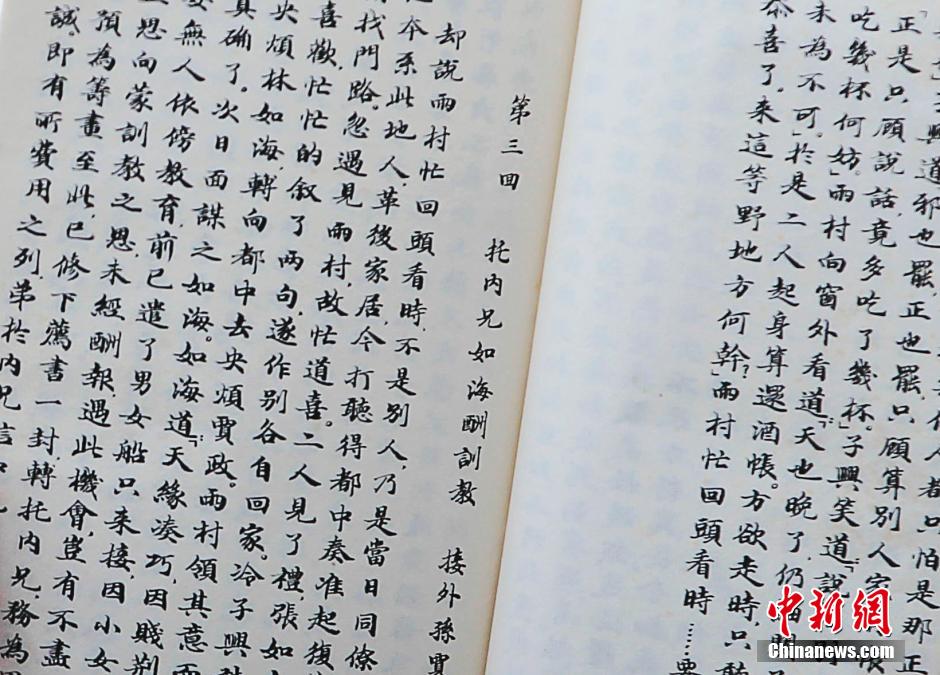 人都只怕是那正
興道邪也罷,正也罷,只顧算別人家
正是只顧說話,竟多吃了幾杯。」子興笑道:「說
吃幾杯何妨」雨村向窗外看道:「天也晚了,仍
未為不可。」於是二人起身算還酒帳。方欲走時,只聽
恭喜了,来這等野地方何幹?」雨村忙回頭看時……要
第三回 托內兄如海酬訓教 接外孫賈
却說雨村忙回頭看時,不是別人,乃是當日同僚
本系此地人,革後家居,今打聽得都中奏准起復
找門路,忽遇見雨村,故忙道喜。二人見了禮,張如
喜歡,忙忙的叙了兩句,遂作別各自回家。冷子興
央煩林如海,轉向都中去央煩賈政。雨村領其意而
真确了。次日面謀之如海。如海道:「天緣湊巧,因賤荆
無人依傍教育,前已遣了男女船只来接,因小女
思向蒙訓教之恩,未經酬報,遇此機會,豈有不盡
預為籌畫至此,已修下薦書一封,轉托內兄務為
誠,即有所費用之列,弟於內兄信中
中新網
Chinanews.com